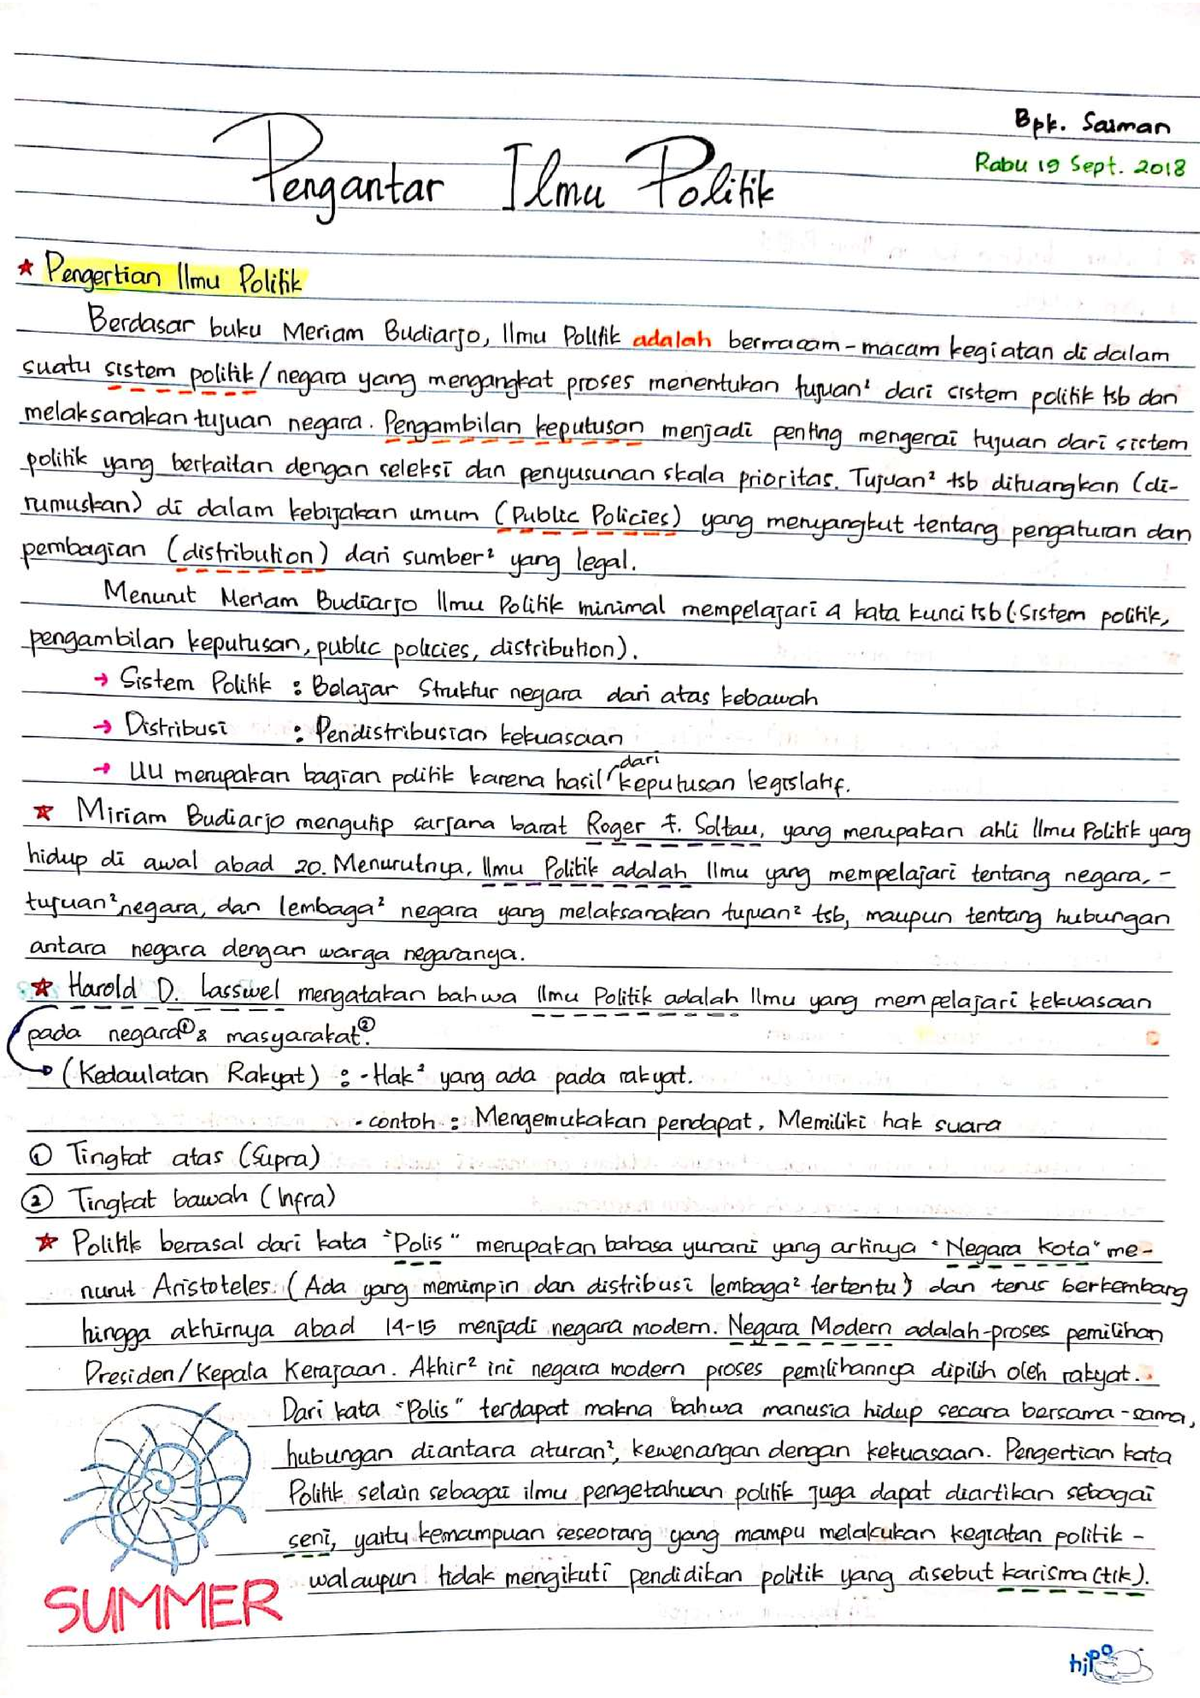 Bpk. Saiman
Rabu 19 Sept. 2018
Pengantar Ilmu Politik
★ Pengertian Ilmu Politik
Berdasar buku Meriam Budiarjo, Ilmu Politik adalah bermacam-macam kegiatan di dalam
suatu sistem politik/negara yang mengangkat proses menentukan tujuan² dari sistem politik tsb dan
melaksanakan tujuan negara. Pengambilan keputusan menjadi penting mengenai tujuan dari sistem
politik yang berkaitan dengan seleksi dan penyusunan skala prioritas. Tujuan² tsb dituangkan (di-
rumuskan) di dalam kebijakan umum (Public Policies) yang menyangkut tentang pengaturan dan
pembagian (distribution) dari sumber² yang legal.
Menurut Meriam Budiarjo Ilmu Politik minimal mempelajari 4 kata kunci tsb (Sistem politik,
pengambilan keputusan, public policies, distribution).
→ Sistem Politik : Belajar Struktur negara dari atas kebawah
→ Distribusi : Pendistribusian kekuasaan
→ UU merupakan bagian politik karena hasil dari keputusan legislatif.
★ Miriam Budiarjo mengutip sarjana barat Roger F. Soltau, yang merupakan ahli Ilmu Politik yang
hidup di awal abad 20. Menurutnya, Ilmu Politik adalah Ilmu yang mempelajari tentang negara, -
tujuan² negara, dan lembaga² negara yang melaksanakan tujuan² tsb, maupun tentang hubungan
antara negara dengan warga negaranya.
★ Harold D. Lasswel mengatakan bahwa Ilmu Politik adalah Ilmu yang mempelajari kekuasaan
pada negara① & masyarakat②.
(Kedaulatan Rakyat) : - Hak² yang ada pada rakyat.
- contoh : Mengemukakan pendapat, Memiliki hak suara
① Tingkat atas (Supra)
② Tingkat bawah (Infra)
★ Politik berasal dari kata "Polis" merupakan bahasa yunani yang artinya "Negara Kota" me-
nurut Aristoteles. (Ada yang memimpin dan distribusi lembaga² tertentu) dan terus berkembang
hingga akhirnya abad 14-15 menjadi negara modern. Negara Modern adalah-proses pemilihan
Presiden/Kepala Kerajaan. Akhir² ini negara modern proses pemilihannya dipilih oleh rakyat.
Dari kata "Polis" terdapat makna bahwa manusia hidup secara bersama-sama,
hubungan diantara aturan², kewenangan dengan kekuasaan. Pengertian kata
Politik selain sebagai ilmu pengetahuan politik juga dapat diartikan sebagai
seni, yaitu kemampuan seseorang yang mampu melakukan kegiatan politik -
walaupun tidak mengikuti pendidikan politik yang disebut karisma(tik).
SUMMER
hipo